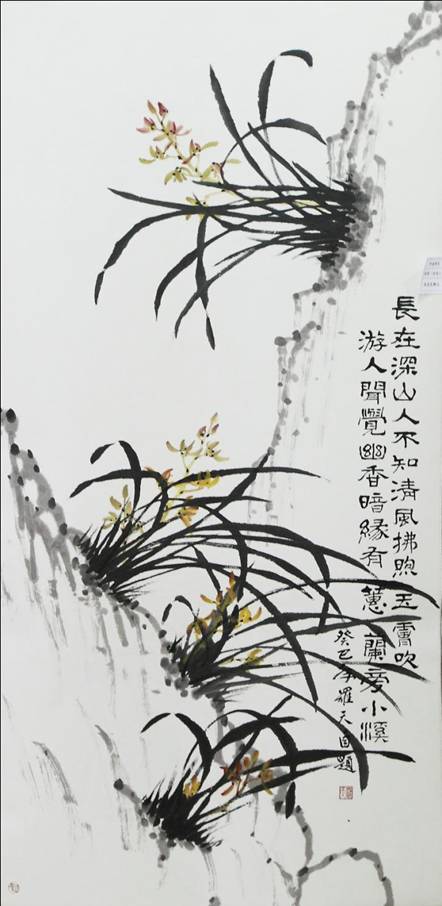 長在深山人不知清風拂煦玉露吹
游人聞覺幽香暗緣有蕙蘭旁小溪
癸巳年羅天固題